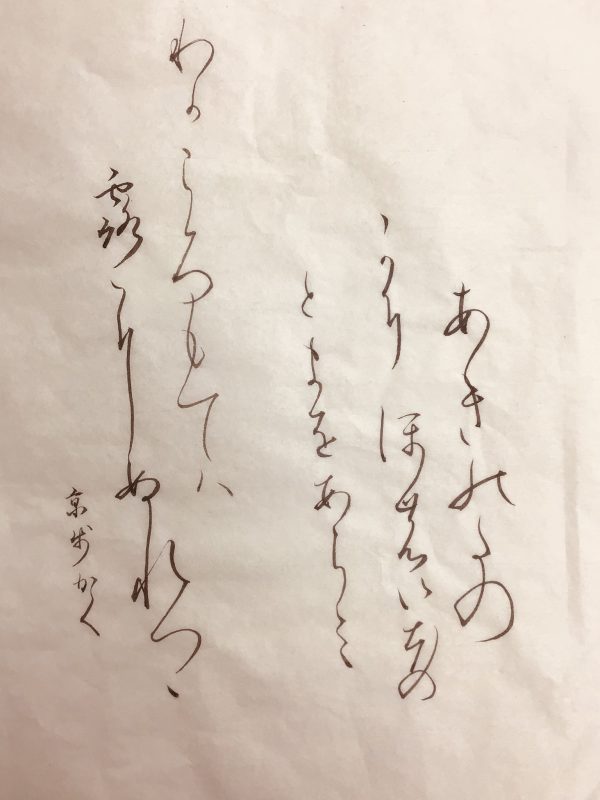 あきのたの
かりほのいほの
とまをあらミ
わかころもてハ
露にぬれつゝ
京歩かく